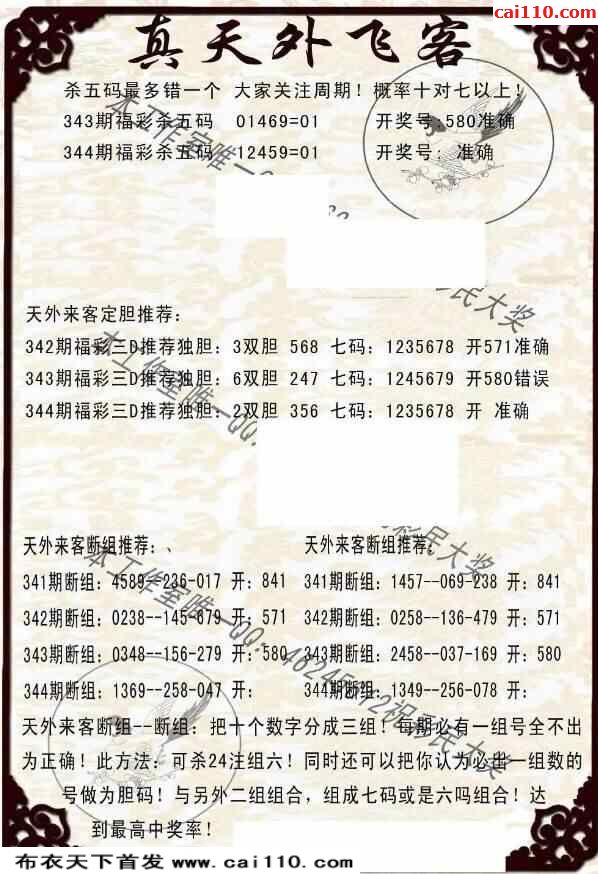 彩吧助手
cai110.com
真天外飞客
杀五码最多错一个 大家关注周期！概率十对七以上！
343期福彩杀五码 01469=01 开奖号:580准确
344期福彩杀五码 12459=01 开奖号: 准确
天外来客定胆推荐:
342期福彩三D推荐独胆: 3双胆 568 七码: 1235678 开571准确
343期福彩三D推荐独胆: 6双胆 247 七码: 1245679 开580错误
344期福彩三D推荐独胆: 2双胆 356 七码: 1235678 开 准确
天外来客断组推荐:、 天外来客断组推荐:
341期断组: 4589--236-017 开: 841 341期断组: 1457--069-238 开: 841
342期断组: 0238--145-679 开: 571 342期断组: 0258--136-479 开: 571
343期断组: 0348--156-279 开: 580 343期断组: 2458--037-169 开: 580
344期断组: 1369--258-047 开: 344期断组: 1349--256-078 开:
天外来客断组--断组: 把十个数字分成三组！每期必有一组号全不出
为正确！此方法: 可杀24注组六！同时还可以把你认为必出一组数的
号做为胆码！与另外二组组合, 组成七码或是六吗组合！达
到最高中奖率！
布衣天下首发 www.cai110.com